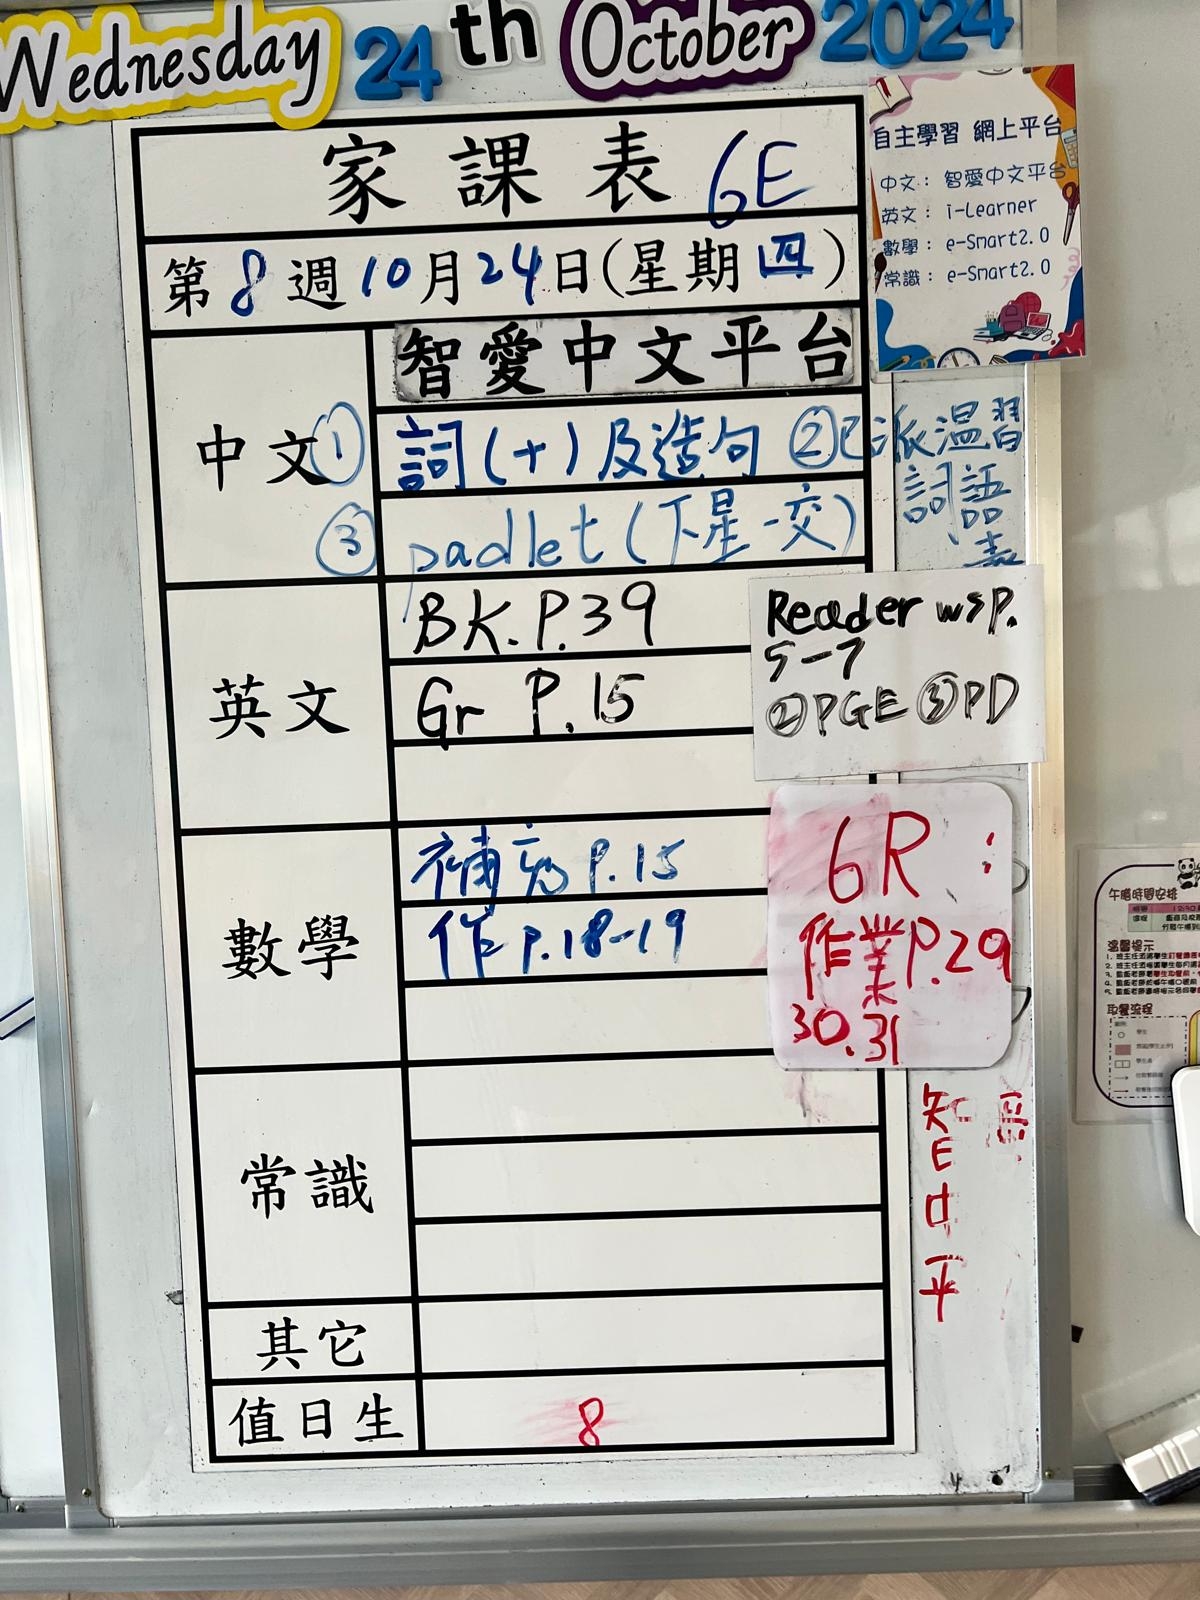 Wednesday 24th October 2024
家課表 6E
第8週10月24日(星期四)
自主學習 網上平台
中文: 智愛中文平台
英文: i-Learner
數學: e-Smart2.0
常識: e-Smart2.0
中文
智愛中文平台
① 詞(十)及造句 ②已派溫習
詞語
表
③ padlet(下星一交)
英文
BK. P.39
Gr P.15
Reader wsp.
5-7
②PGE ③PD
數學
補充 P.15
作 P.18-19
6R:
作業P.29
30.31
常識
智
中
平
其它
值日生
8
午膳時間安排
溫馨提示
取餐流程